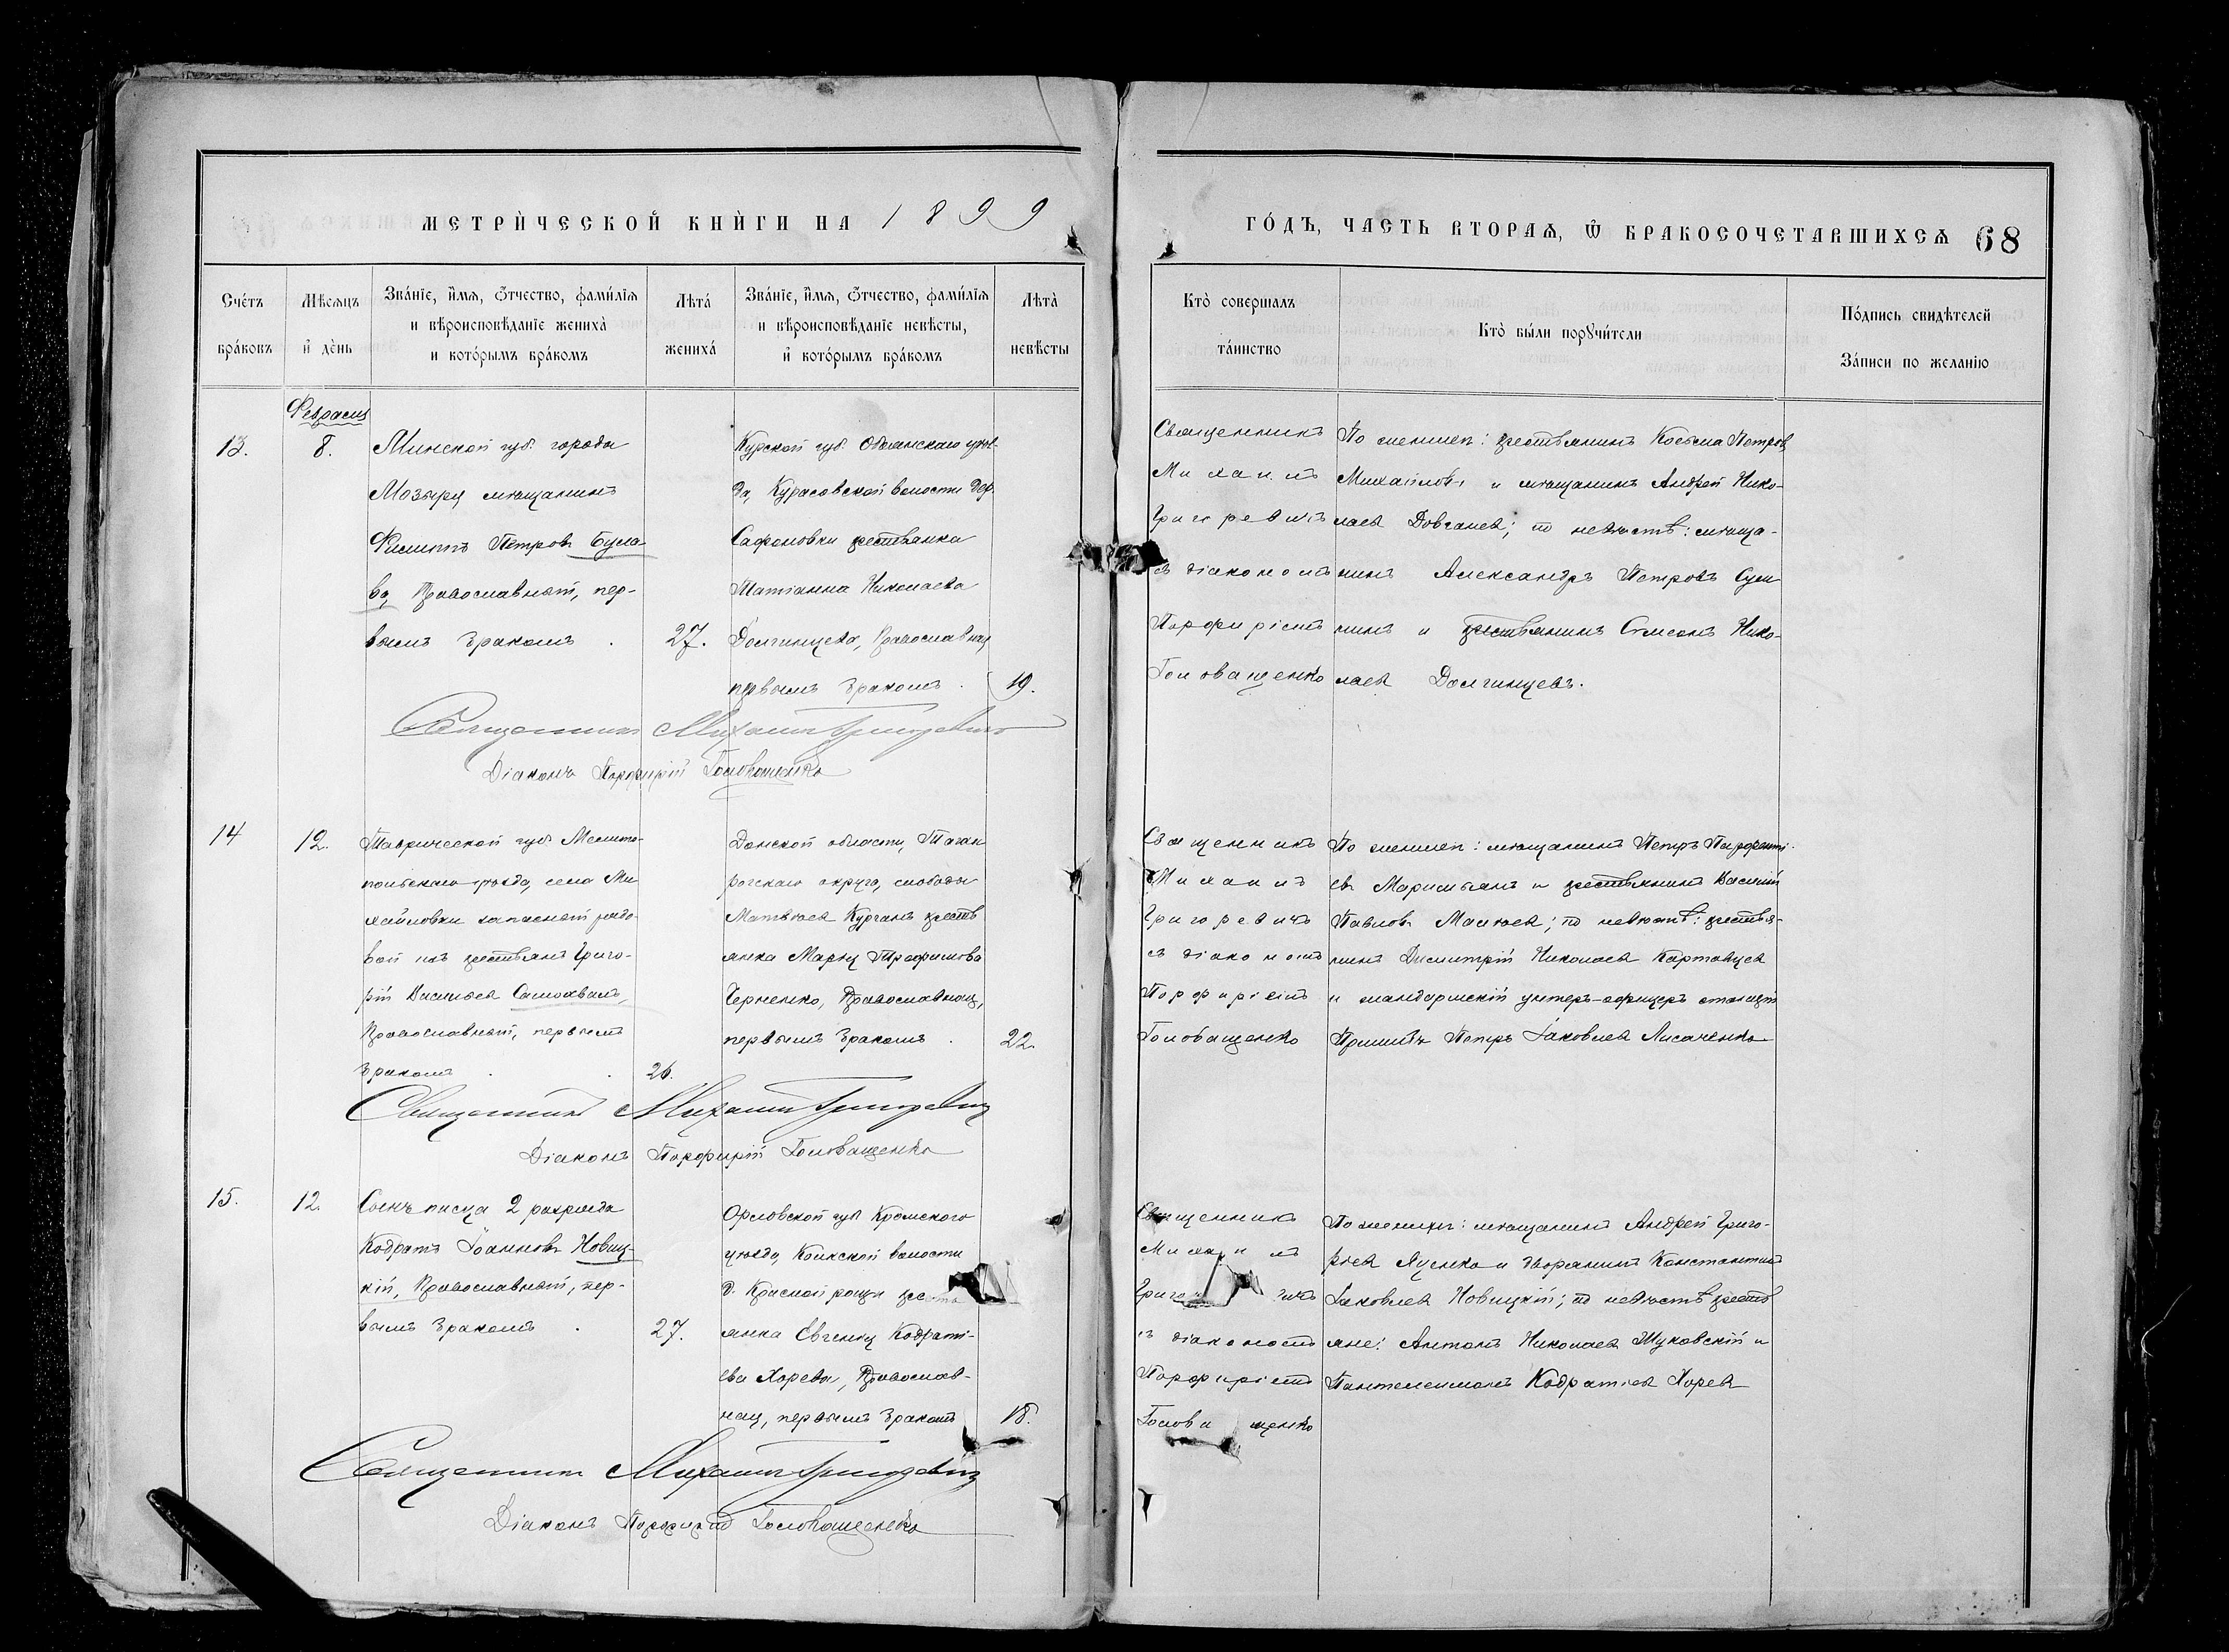 МЕТРИ́ЧЕСКОЙ КНИ́ГИ НА 1899
ГО́ДЪ, ЧАСТЬ ВТОРАѦ, Ѡ҆ БРАКОСОЧЕТАВШИХСѦ 68
Сче́тъ бра́ковъ
Мѣсѧцъ и҆ де́нь
Зва́нїе, и҆́мѧ, ѻ҆́тчество, фами́лїѧ
и вѣроисповѣ́данїе жениха̀
и кото́рымъ бра́комъ
Лѣта́ жениха́
Зва́нїе, и҆́мѧ, ѻ҆́тчество, фами́лїѧ
и вѣроисповѣ́данїе невѣ́сты,
и҆ кото́рымъ бра́комъ
Лѣта̀ невѣ́сты
Кто̀ совершалъ та́инство
Кто̀ бы́ли порꙋчи́тели
По́дпись свидѣ́телей
За́писи по желанїю
Февраля
13.
8.
Минской губ. города
Мозыря мѣщанинъ
Филиппъ Петровъ Була-
ва, Православный, пер-
вымъ бракомъ .
27.
Курской губ. Обоянскаго уѣз-
да, Курасовской волости дер.
Сафоновки крестьянка
Татіанна Николаева
Долгинцева, Православная
первымъ бракомъ .
19.
Священникъ
Михаилъ
Григоревичъ
съ діакономъ
Порфиріемъ
Головащенко
По женихѣ: крестьянинъ Косьма Петровъ
Михайловъ и мѣщанинъ Андрей Нико-
лаевъ Довганевъ; по невѣстѣ: мѣща-
нинъ Александръ Петровъ
и крестьянинъ Сѵмеонъ Нико-
лаевъ Долгинцевъ.
Священникъ Михаилъ Григоревичъ
Діаконъ Порфирій Головащенко
14
12.
Таврической губ. Мелито-
польскаго уѣзда, села Ми-
хайловки запасный рядо-
вой изъ крестьянъ Григо-
рій Васильевъ Самохвалъ,
Православный, первымъ
бракомъ . .
26.
Донской области, Таган-
рогскаго округа, слободы
Матвѣева Кургана кресть-
янка Марія Трофимова
Черненко, Православная,
первымъ бракомъ .
22.
Священникъ
Михаилъ
Григоревичъ
съ діакономъ
Порфиріемъ
Головащенко
По женихѣ: мѣщанинъ Петръ
и крестьянинъ Василій
Павловъ по невѣстѣ: крестья-
нинъ Димитрій Николаевъ Картавцевъ
и жандармскій унтеръ-офицеръ станціи
Пришибъ Петръ Іаковлевъ Лисаченко
Священникъ Михаилъ Григоревичъ
Діаконъ Порфирій Головащенко
15.
12.
Сынъ писца 2 разряда
Кодратъ Іоанновъ Новиц-
кій, Православный, пер-
вымъ бракомъ .
27.
Орловской губ Кромскаго
уѣзда, волости
д. Красной рощи
янка Евгенія Кодрать-
ева Хорева, Православ-
ная, первымъ бракомъ
18.
Священникъ
Михаилъ
съ діакономъ
Порфиріемъ
Головащенко
По женихѣ: мѣщанинъ Андрей Григо-
рьевъ Яценко и дворянинъ Константинъ
Іаковлевъ Новицкій; по невѣстѣ кресть-
яне: Антонъ Николаевъ Жуковскій и
Пантелеимонъ Кодратіевъ Хоревъ
Священникъ Михаилъ Григоревичъ
Діаконъ Порфирій Головащенко